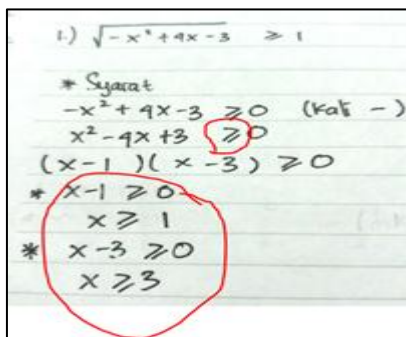 1.) √-x² + 4x - 3 ≥ 1
* Syarat
-x² + 4x - 3 ≥ 0 (kali -)
x² - 4x + 3 ≥ 0
(x - 1)(x - 3) ≥ 0
* x - 1 ≥ 0
x ≥ 1
* x - 3 ≥ 0
x ≥ 3